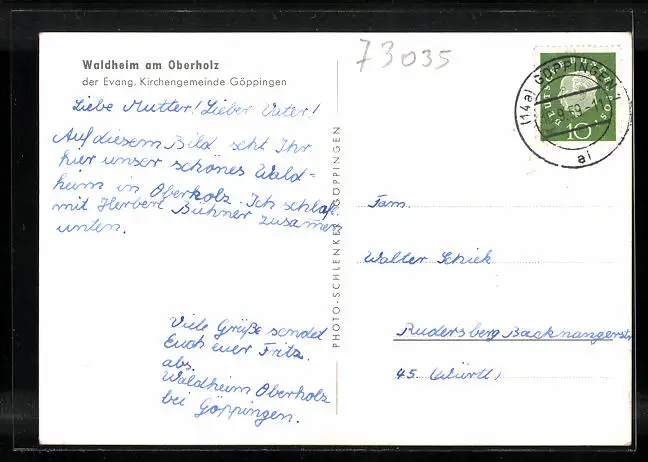 Waldheim am Oberholz
der Evang. Kirchengemeinde Göppingen
73035
Liebe Mutter! Lieber Vater!
Auf diesem Bild seht Ihr
hier unser schönes Wald=
heim in Oberholz. Ich schlafe
mit Herbert Bühner zusammen
unten.
Viele Grüße sendet
Euch euer Fritz.
abs.
Waldheim Oberholz
bei Göppingen.
PHOTO-SCHLENKER, GÖPPINGEN
(14a) GÖPPINGEN 1
59
ai
10
Fam.
Walter Schiek
Rudersberg Backnangerstr
45. Württ,